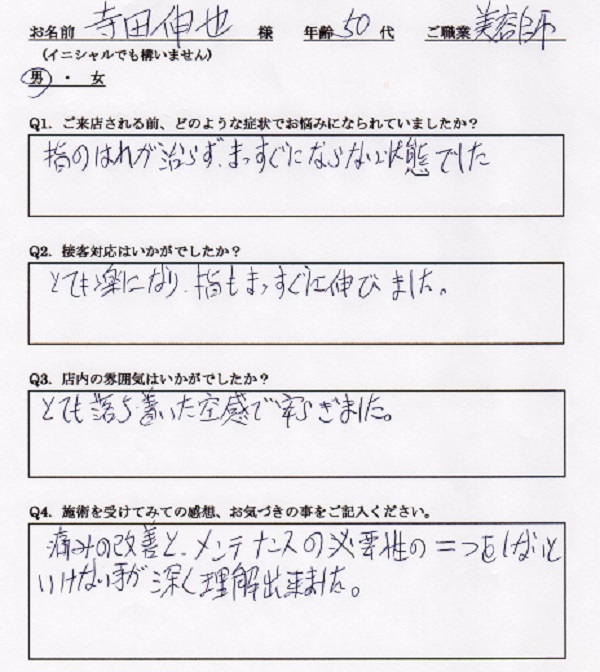 お名前 寺田伸也 様 年齢 50 代 ご職業 美容師
(イニシャルでも構いません)
男 ・ 女
Q1. ご来店される前、どのような症状でお悩みになられていましたか?
指のはれが治らず、まっすぐにならない状態でした
Q2. 接客対応はいかがでしたか?
とても楽になり、指もまっすぐに伸びました。
Q3. 店内の雰囲気はいかがでしたか?
とても落ち着いた空感で安らぎました。
Q4. 施術を受けてみての感想、お気づきの事をご記入ください。
痛みの改善と、メンテナンスの必要性の二つをしないと
いけない事が深く理解出来ました。